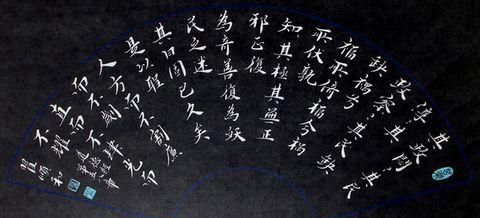 其政悶其民
淳其
政察其民缺
缺禍兮
福所倚福兮禍
所伏孰
知其極其無正
邪正復
為奇善復為妖
民之迷
其日固已久矣
是以聖
人方而不割廉
而不
直而不光而
不耀